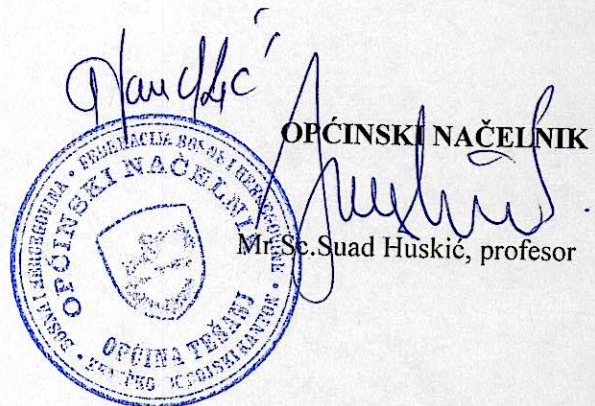 OPĆINSKI NAČELNIK
Mr.Sc.Suad Huskić, profesor
BOSNA I HERCEGOVINA • FEDERACIJA BOSNE I HERCEGOVINE
OPĆINSKI NAČELNIK
OPĆINA TEŠANJ